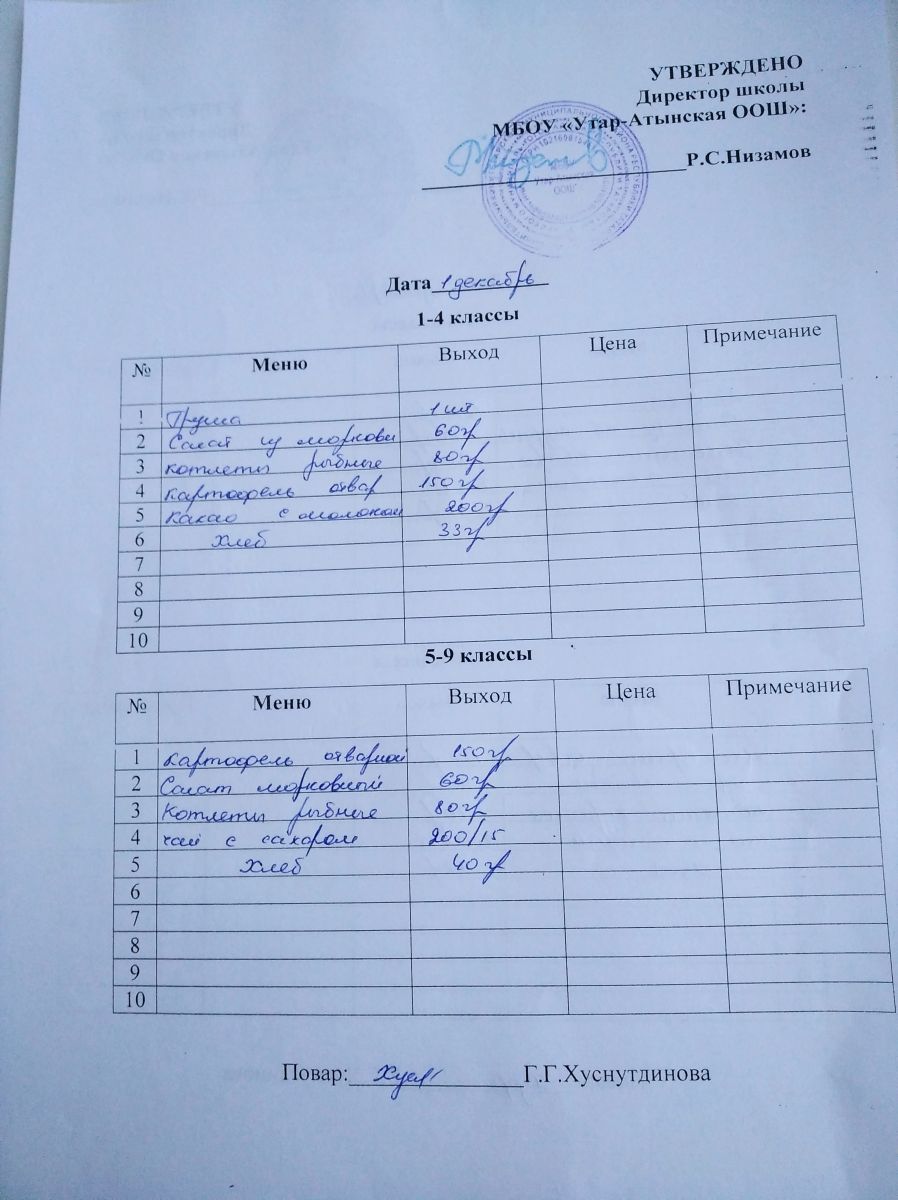 УТВЕРЖДЕНО
Директор школы
МБОУ «Утар-Атынская ООШ»:
Р.С.Низамов
Дата 1 декабрь
1-4 классы
№ Меню Выход Цена Примечание
1 Груша 1 шт
2 Салат из моркови 60гр
3 Котлеты рыбные 80гр
4 Картофель отвар 150гр
5 Какао с молоком 200гр
6 Хлеб 33гр
7
8
9
10
5-9 классы
№ Меню Выход Цена Примечание
1 Картофель отварной 150гр
2 Салат морковный 60гр
3 Котлеты рыбные 80гр
4 чай с сахаром 200/15
5 Хлеб 40гр
6
7
8
9
10
Повар: Г.Г.Хуснутдинова